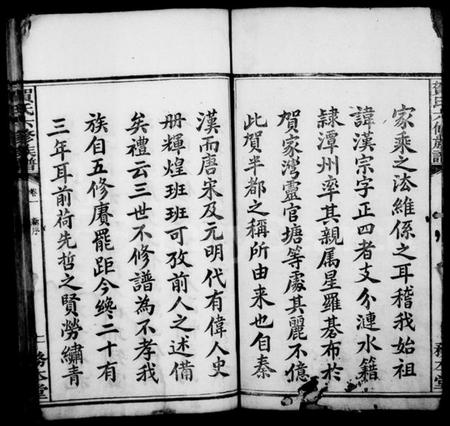 家乘之法維係之耳稽我始祖
諱漢宗字正四者支分漣水籍
隸潭州率其親属星羅棊布於
賀家灣靈官塘等處其麗不億
此賀半都之稱所由來也自秦
賀氏六修族譜
務本堂
漢而唐宋及元明代有偉人史
册輝煌班班可攷前人之述備
矣禮云三世不修譜為不孝我
族自五修賡罷距今纔二十有
三年耳前荷先哲之賢勞繡青
賀氏六修族譜
卷一
序
務本堂